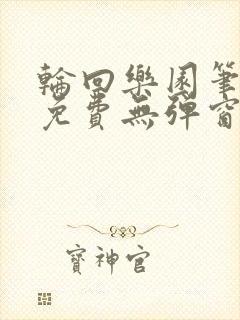 輪回樂園筆
免費無彈窗
寶神官